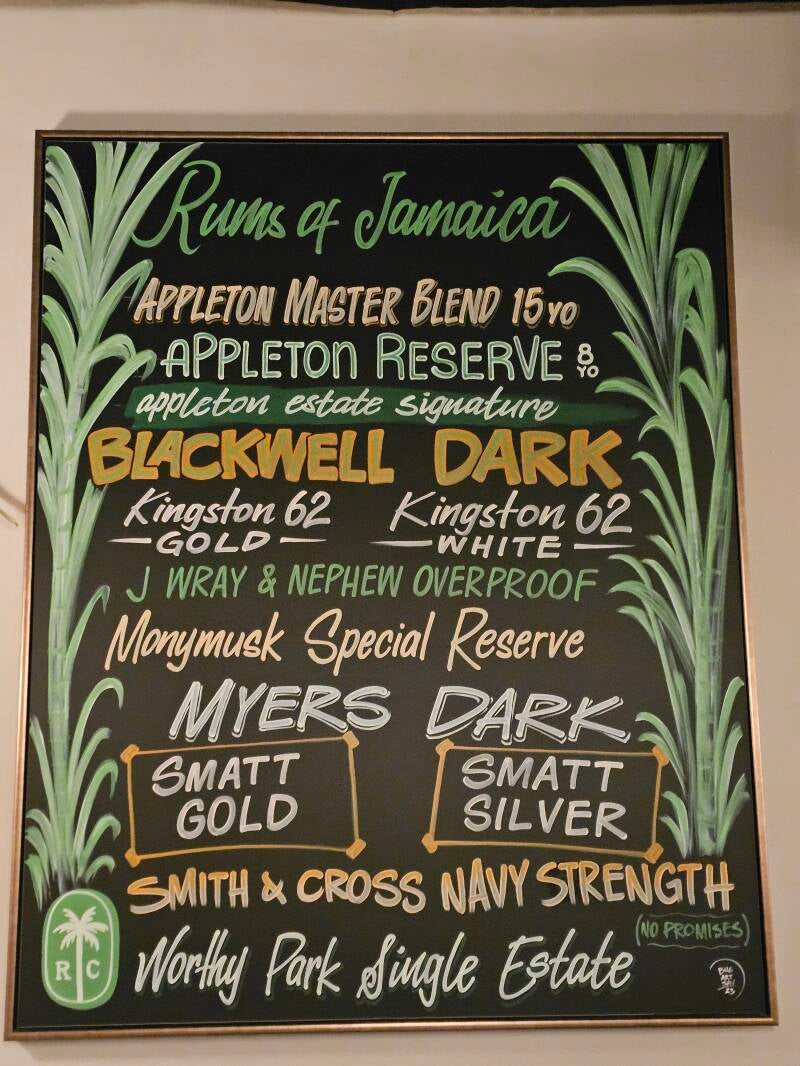 Rums of Jamaica
APPLETON MASTER BLEND 15 YO
APPLETON RESERVE 8 YO
appleton estate signature
BLACKWELL DARK
Kingston 62 Kingston 62
GOLD WHITE
J WRAY & NEPHEW OVERPROOF
Monymusk Special Reserve
MYERS DARK
SMATT SMATT
GOLD SILVER
SMITH & CROSS NAVY STRENGTH
(NO PROMISES)
Worthy Park Single Estate
R C